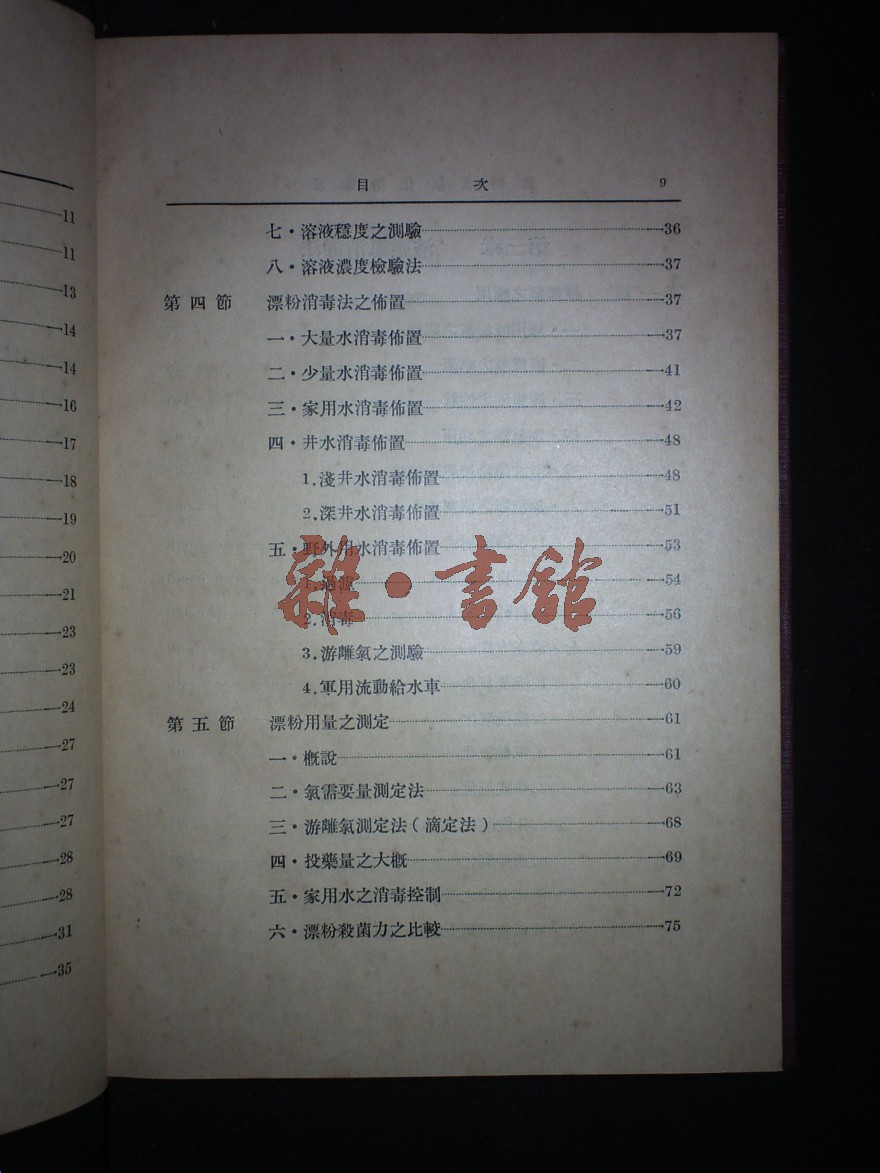 11
11
13
14
14
16
17
18
19
20
21
23
23
24
27
27
27
28
28
31
35
目 次 9
七·溶液穩度之測驗 36
八·溶液濃度檢驗法 37
第四節 漂粉消毒法之佈置 37
一·大量水消毒佈置 37
二·少量水消毒佈置 41
三·家用水消毒佈置 42
四·井水消毒佈置 48
1.淺井水消毒佈置 48
2.深井水消毒佈置 51
五·野外用水消毒佈置 53
1.過濾 54
2.消毒 56
3.游離氯之測驗 59
4.軍用流動給水車 60
第五節 漂粉用量之測定 61
一·概說 61
二·氯需要量測定法 63
三·游離氯測定法(滴定法) 68
四·投藥量之大概 69
五·家用水之消毒控制 72
六·漂粉殺菌力之比較 75
雜·書館